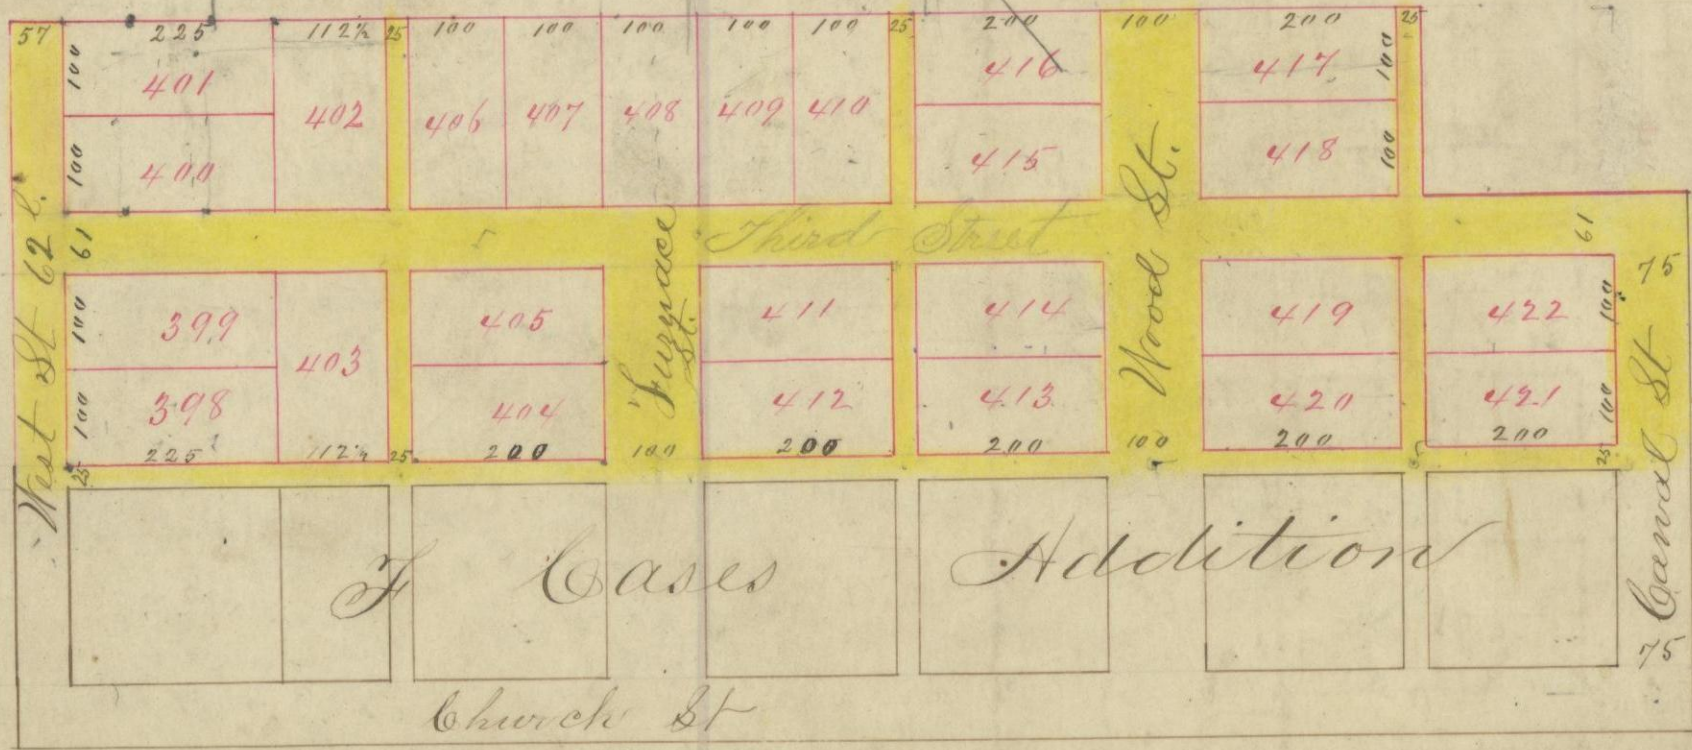 57 225 112½ 25 100 100 100 100 100 25 200 100 200 25
100 401 402 406 407 408 409 410 416 417 100
100 400 415 418 100
West St 62 l.
61 Third Street 61
Furnace St.
Wood St.
75
100 399 403 405 411 414 419 422 100
100 398 404 412 413 420 421 100
225 112½ 25 200 100 200 200 100 200 200 25
25
F Cases Addition
Canal St
75
Church St